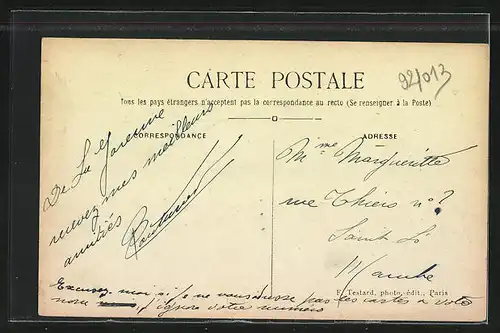 92/013
CARTE POSTALE
Tous les pays étrangers n'acceptent pas la correspondance au recto (Se renseigner à la Poste)
CORRESPONDANCE
De La Garenne
recevez mes meilleurs
amitiés
ADRESSE
Mme Margueritte
rue Thiers no 2
Saint Lô
Manche
F. Testard, photo.-édit., Paris
Excusez moi si je ne vous adresse pas les cartes a votre
nom j'ignore votre numero